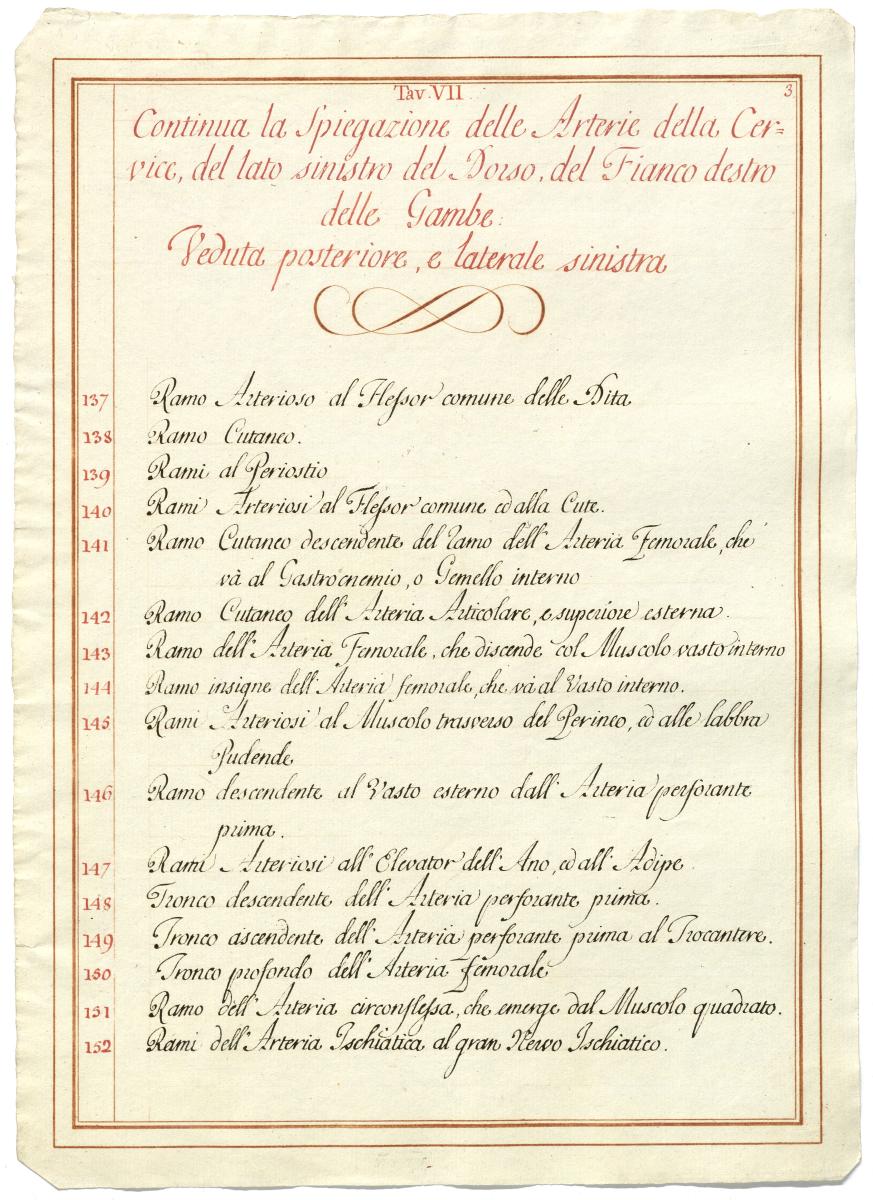 Tav. VII.
3
Continua la Spiegazione delle Arterie della Cer=
vice, del lato sinistro del Dorso, del Fianco destro
delle Gambe:
Veduta posteriore, e laterale sinistra
137 Ramo Arterioso al Flessor comune delle Dita
138 Ramo Cutaneo.
139 Rami al Periostio
140 Rami Arteriosi al Flessor comune ed alla Cute.
141 Ramo Cutaneo descendente del ramo dell' Arteria Femorale, che
và al Gastrocnemio, o Gemello interno
142 Ramo Cutaneo dell' Arteria Articolare, e superiore esterna.
143 Ramo dell' Arteria Femorale, che discende col Muscolo vasto interno
144 Ramo insigne dell' Arteria femorale, che và al Vasto interno.
145 Rami Arteriosi al Muscolo trasverso del Perineo, ed alle labbra
Pudende
146 Ramo descendente al Vasto esterno dall' Arteria perforante
prima.
147 Rami Arteriosi all' Elevator dell' Ano, ed all' Adipe
148 Tronco descendente dell' Arteria perforante prima.
149 Tronco ascendente dell' Arteria perforante prima al Trocantere.
150 Tronco profondo dell' Arteria femorale
151 Ramo dell' Arteria circonflessa, che emerge dal Muscolo quadrato.
152 Rami dell' Arteria Ischiatica al gran Nervo Ischiatico.